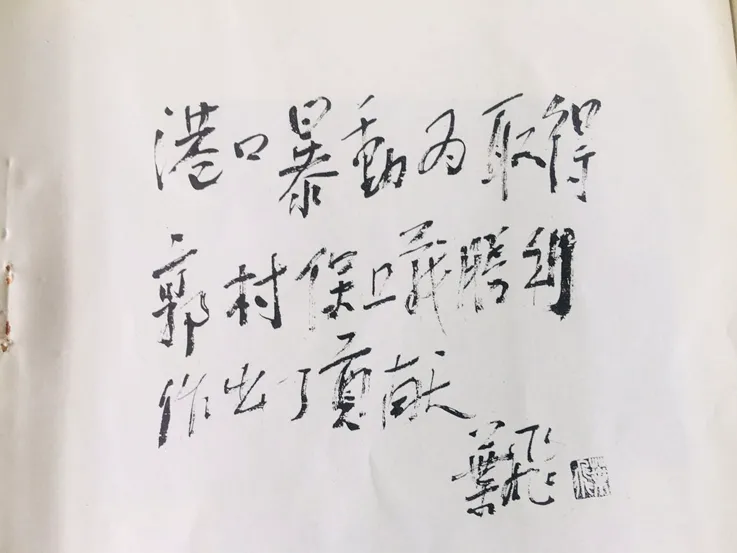 港口暴動为取得
郭村保卫戰勝利
作出了貢献
葉飛